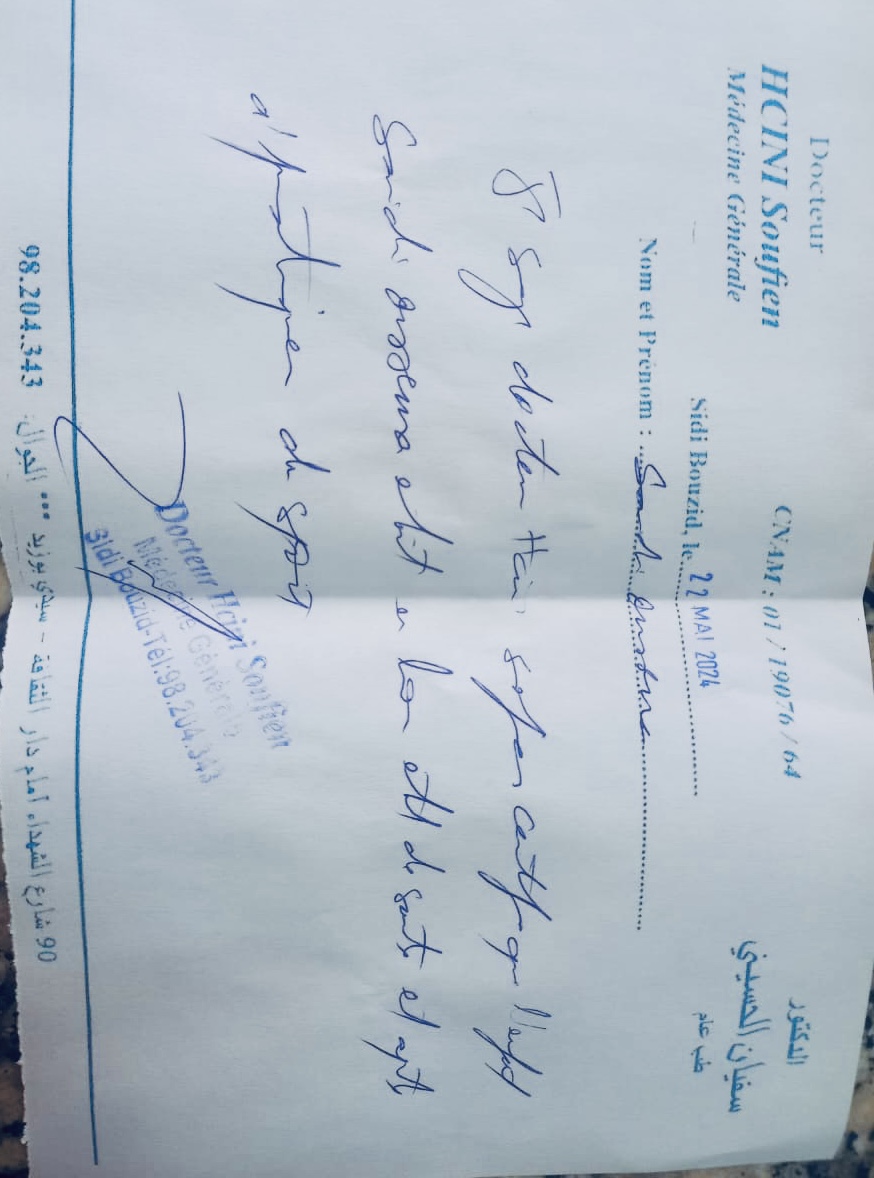 Docteur
HCINI Soufien
Médecine Générale
CNAM : 01 / 19076 / 64
الدكتور
سفيان الحسيني
طب عام
Sidi Bouzid, le 22 MAI 2024
Nom et Prénom : Saidi
docteur Hcini certifie que l'enfant
Saidi en bon état de santé et apte
a pratiquer du sport
Docteur Hcini Soufien
Médecine Générale
Sidi Bouzid-Tél:98.204.343
90 شارع الشهداء أمام دار الثقافة - سيدي بوزيد *** الجوال: 98.204.343